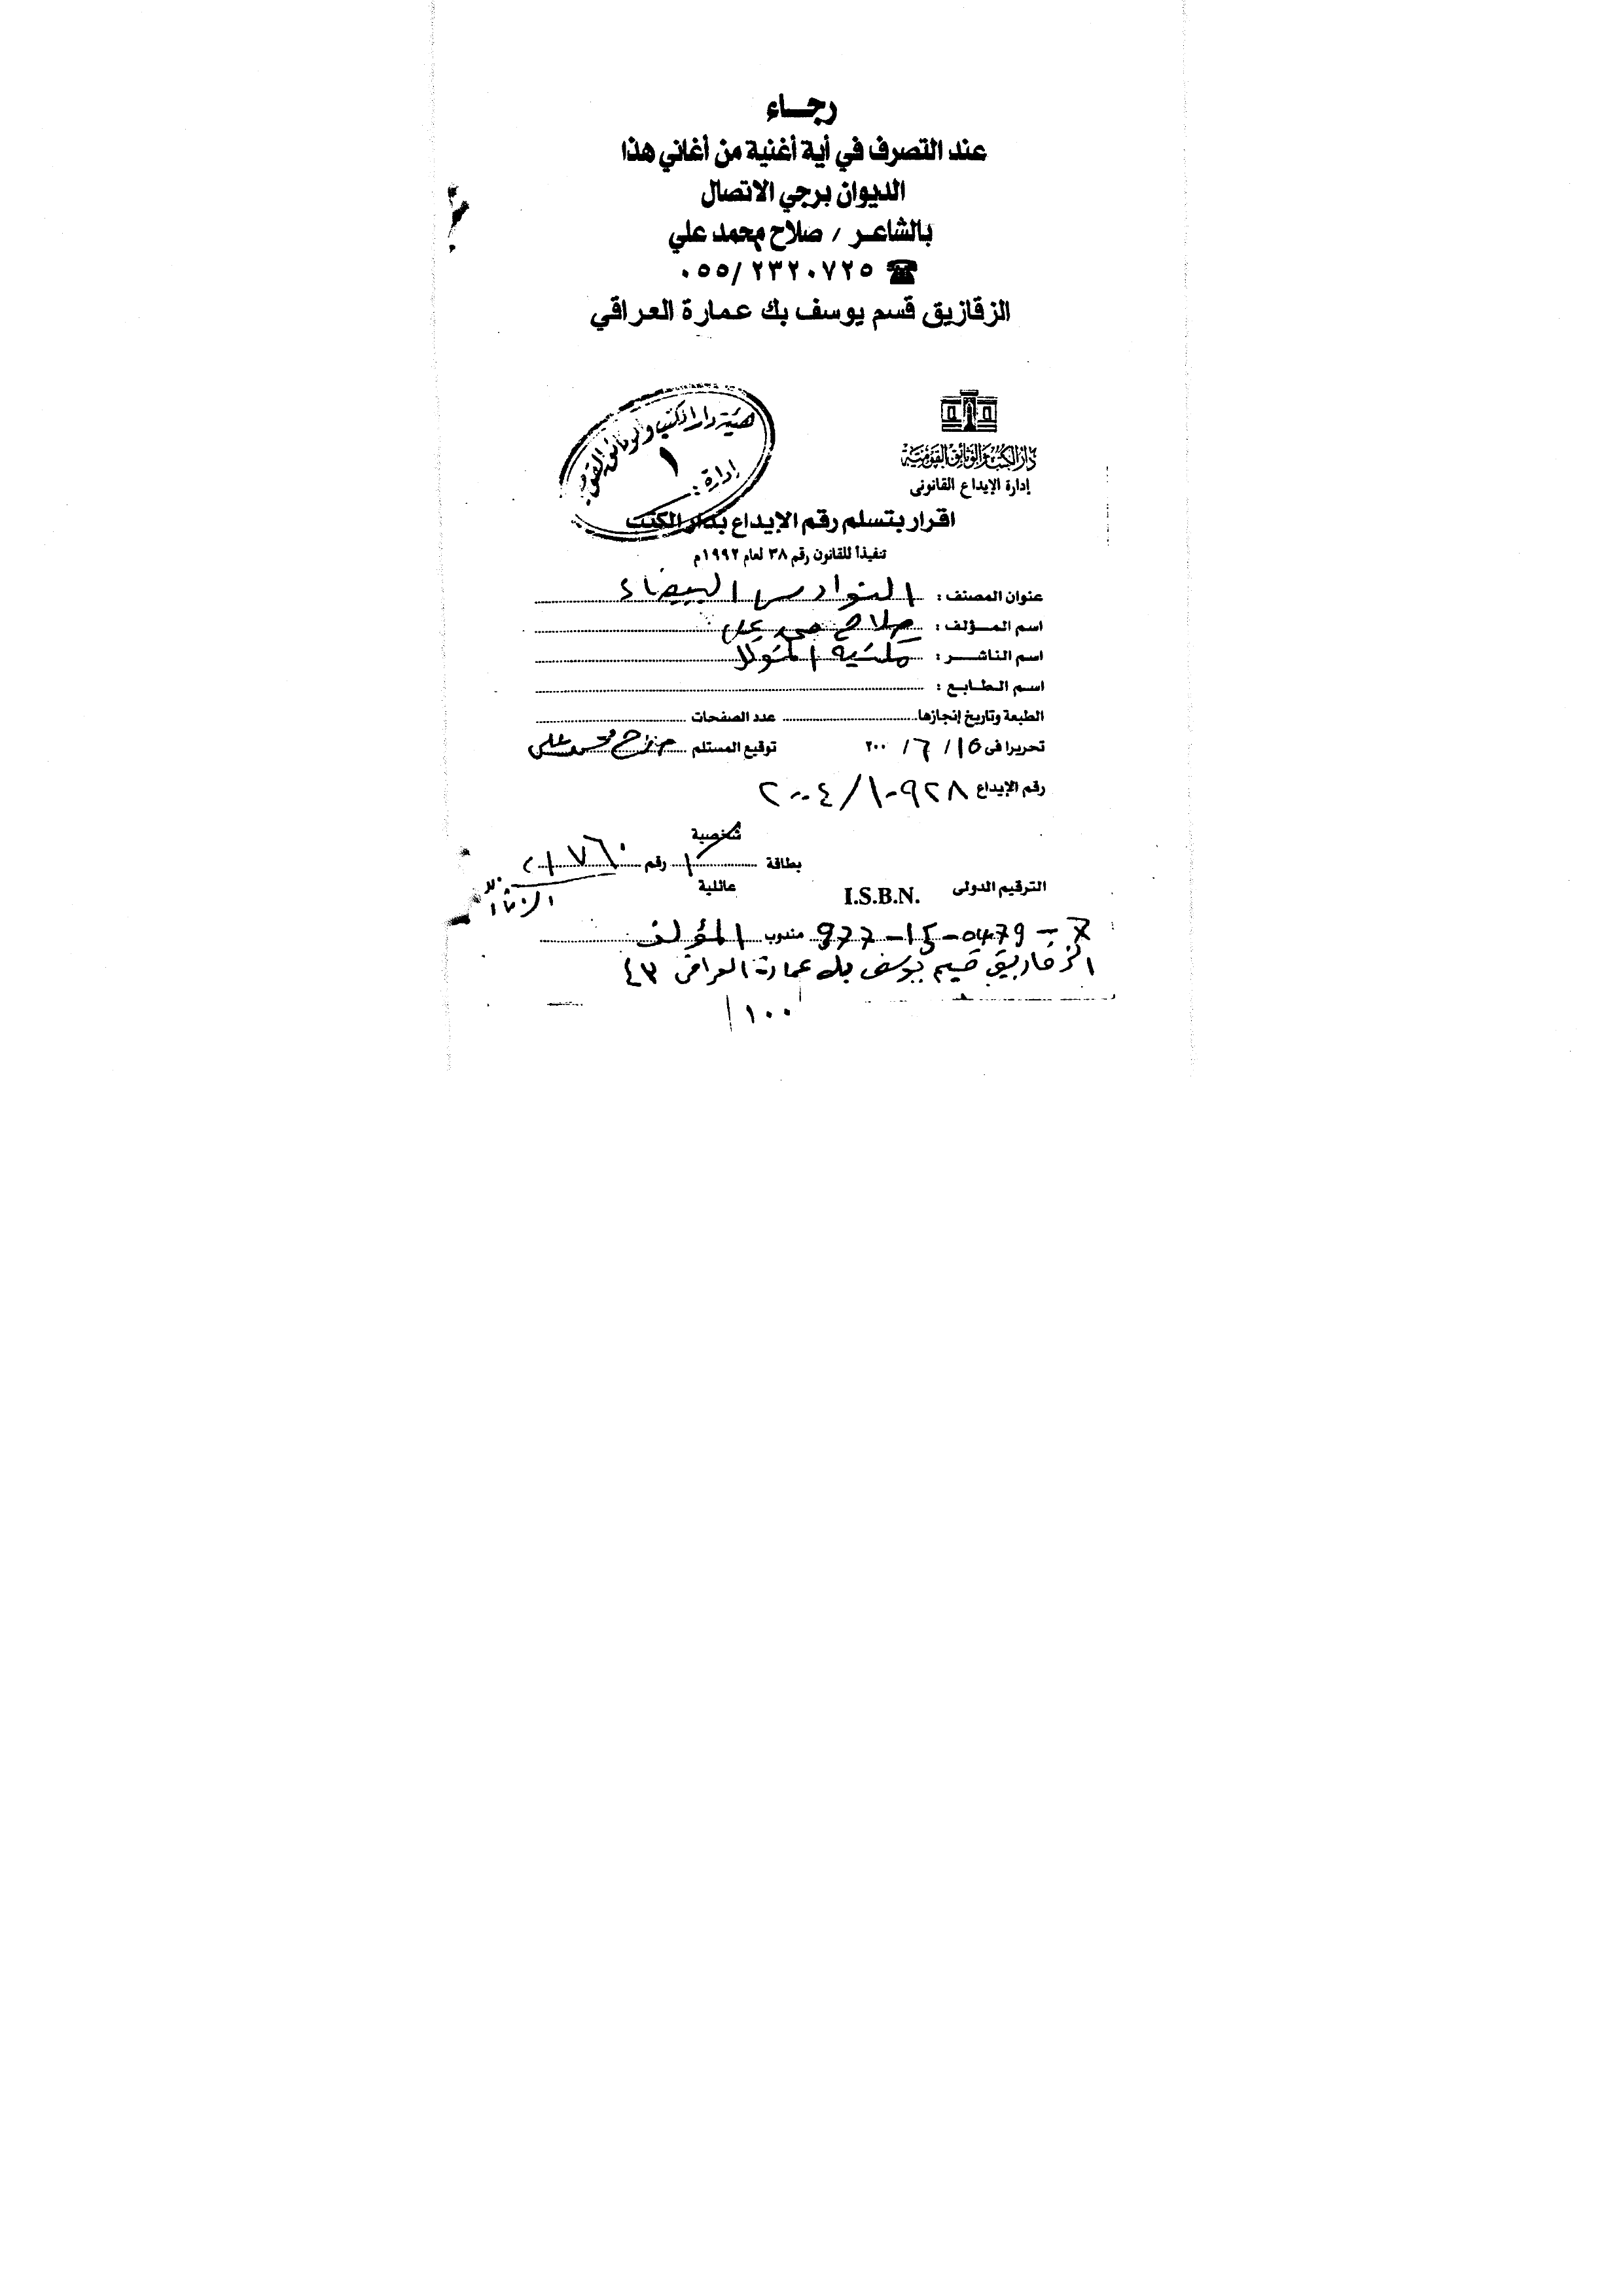 رجـــاء
عند التصرف في أية أغنية من أغاني هذا
الديوان برجي الاتصال
بالشاعـر / صلاح محمد علي
☎ ٠٥٥/٢٣٢٠٧٢٥
الزقازيق قسم يوسف بك عمارة العراقي
هيئة دار الكتب والوثائق القومية
١
إدارة :
دار الكتب والوثائق القومية
إدارة الإيداع القانونى
اقرار بتسلم رقم الإيداع بدار الكتب
تنفيذاً للقانون رقم ٣٨ لعام ١٩٩٢م
عنوان المصنف : النوارس البيضاء
اسم المــؤلف : صلاح محمد على
اسم الناشـــر : مكتبة
اسـم الـطـابـع :
الطبعة وتاريخ إنجازها عدد الصفحات
تحريرا فى ١٥ / ٦ / ٢٠٠ توقيع المستلم صلاح محمد على
رقم الإيداع ١٠٩٢٨ / ٢٠٠٤
شخصية
بطاقة رقم
عائلية
الترقيم الدولى I.S.B.N.
977-15-0479-X مندوب المؤلف
الزقازيق قسم يوسف بك عمارة العراقى ٤٣
١٠٠